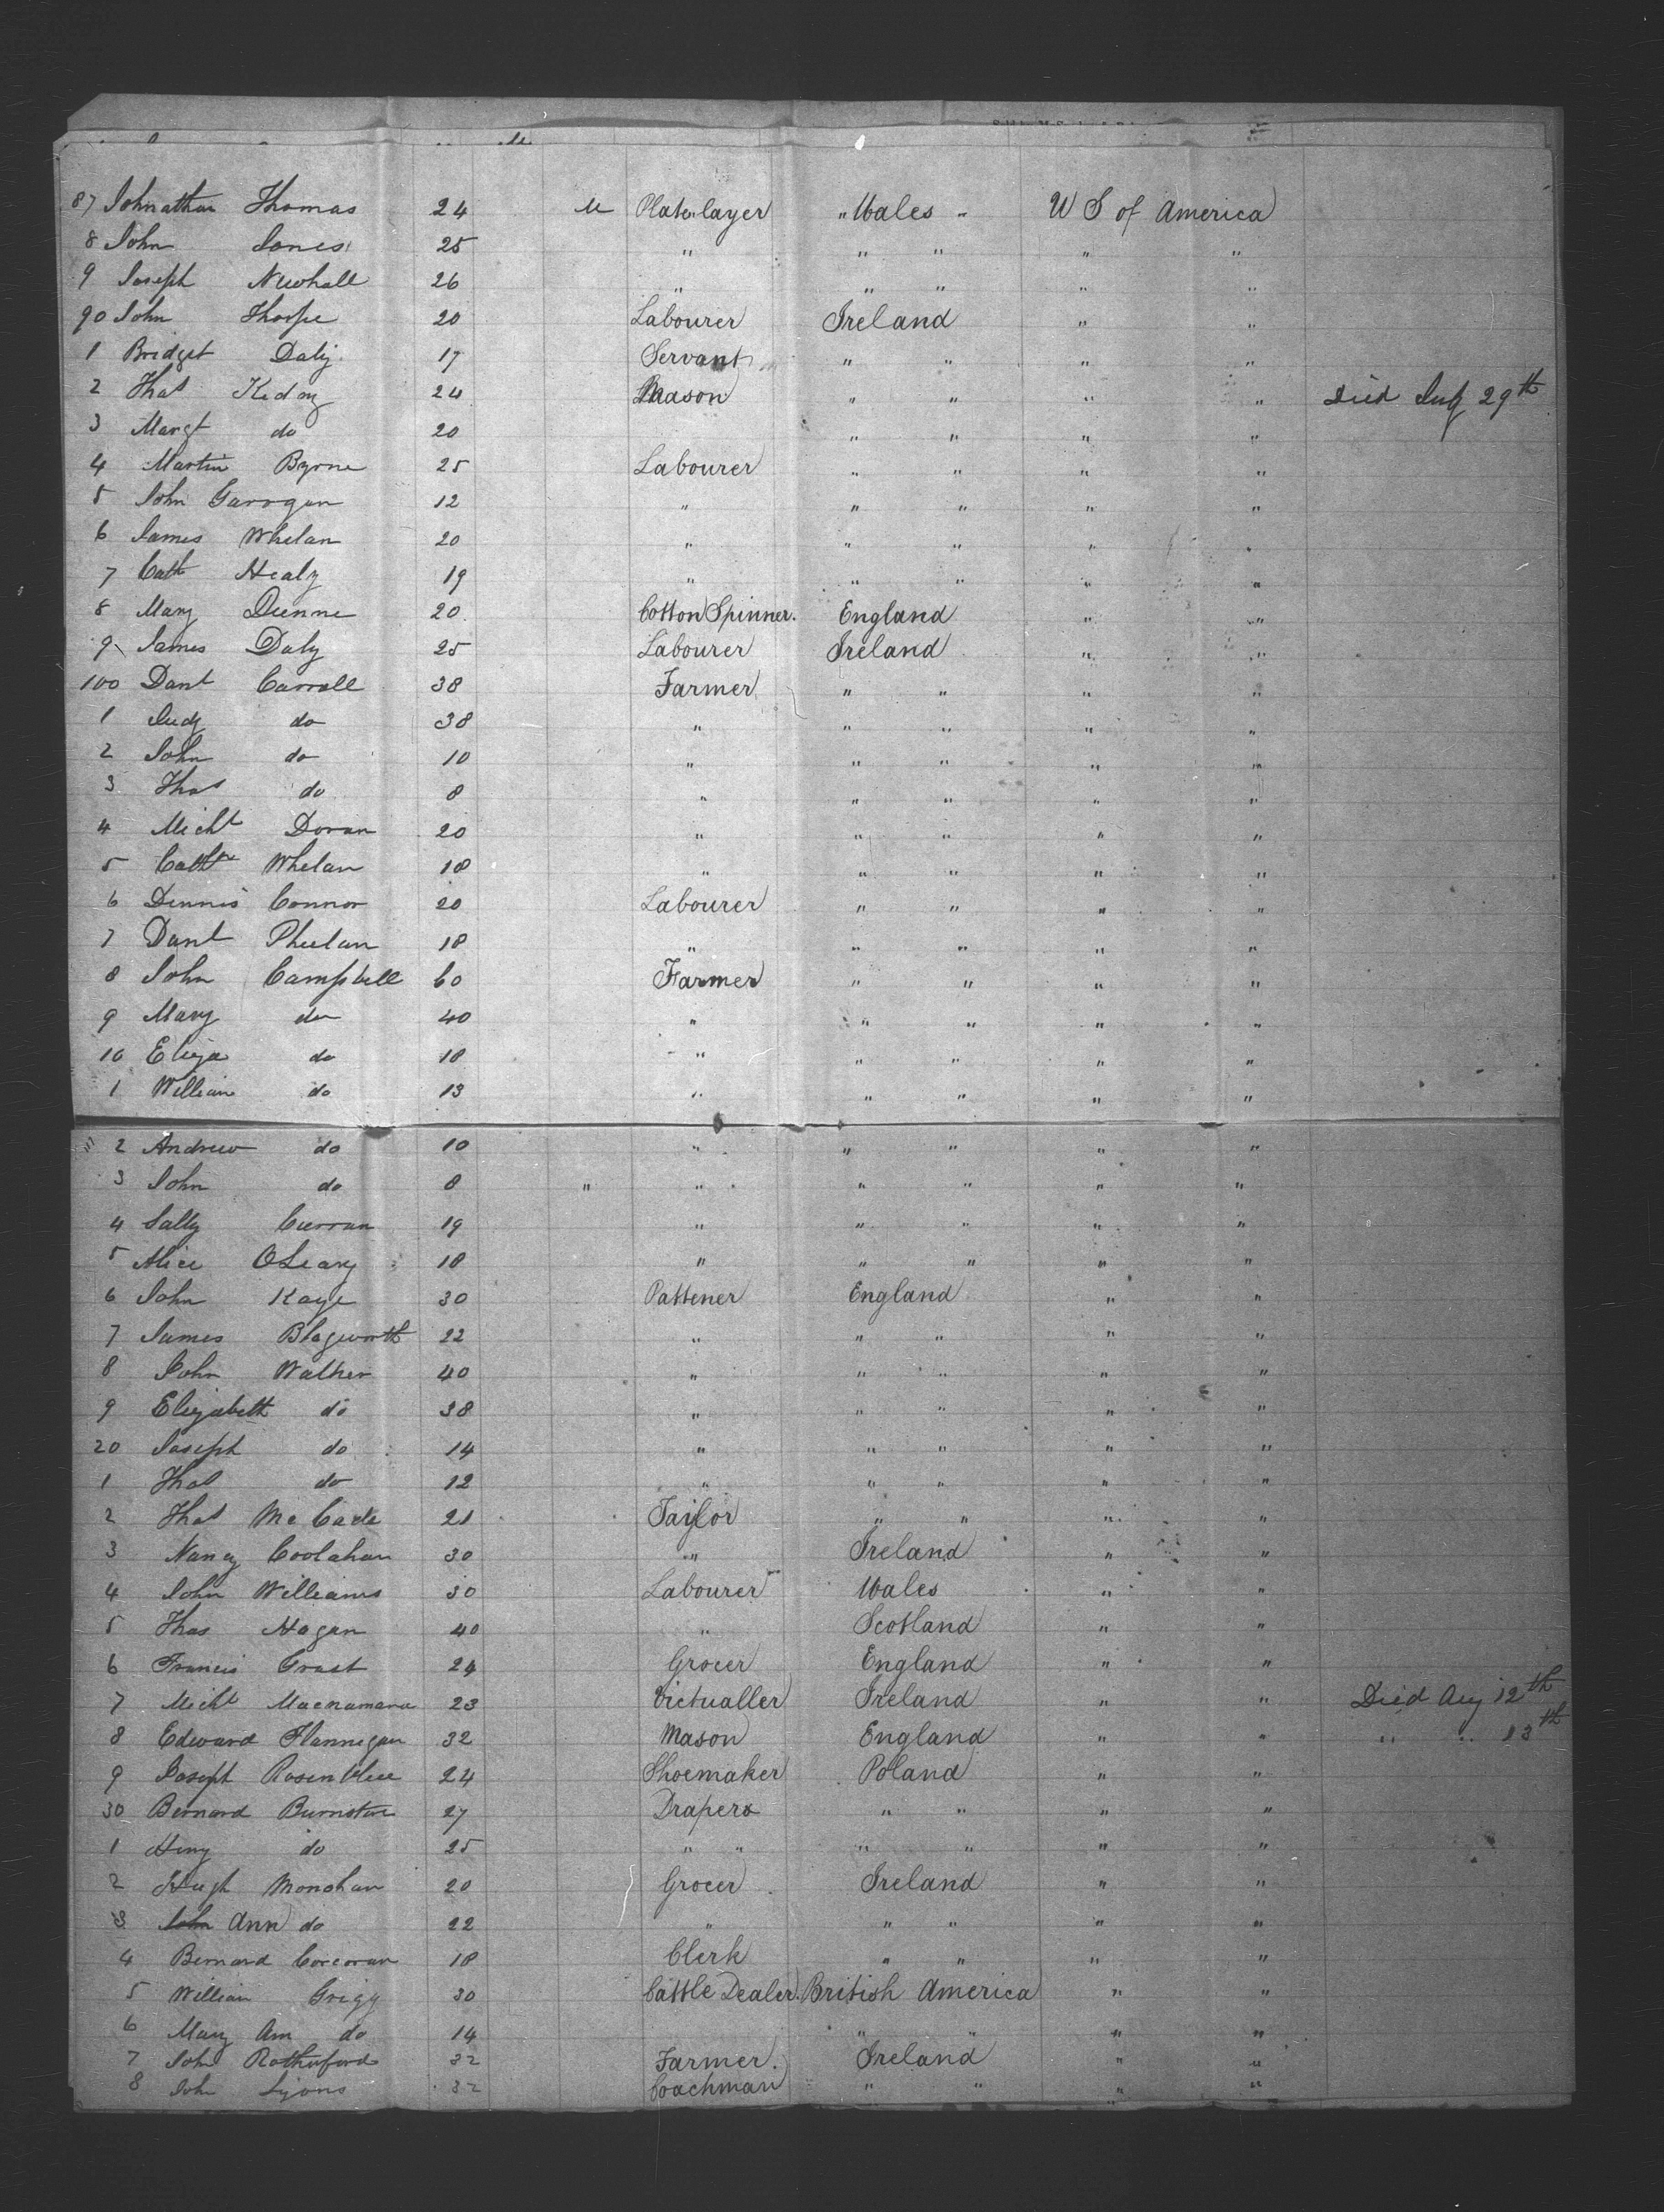 87 Johnathan Thomas 24 M Platelayer " Wales " U S of America
8 John Jones 25 " " " " "
9 Joseph Newhall 26 " " " " "
90 John Thorpe 20 Labourer Ireland " "
1 Bridget Daly 17 Servant " " " "
2 Thos 24 Mason " " " " Died 29th
3 Margt do 20 " " " "
4 Martin Byrne 25 Labourer " " " "
5 John Garrogan 12 " " " " "
6 James Whelan 20 " " " " "
7 Cath Healy 19 " " " " "
8 Mary Dunne 20 Cotton Spinner. England " "
9 James Daly 25 Labourer Ireland " "
100 Danl Carroll 38 Farmer " " " "
1 Judy do 38 " " " " "
2 John do 10 " " " " "
3 Thos do 8 " " " " "
4 Michl Doran 20 " " " " "
5 Cathe Whelan 18 " " " " "
6 Dennis Connor 20 Labourer " " " "
7 Danl Phelan 18 " " " " "
8 John Campbell 60 Farmer " " " "
9 Mary do 40 " " " " "
10 Eliza do 18 " " " " "
1 William do 13 " " " " "
2 Andrew do 10 " " " " "
3 John do 8 " " " " " "
4 Sally Curran 19 " " " " "
5 Alice OLeary 18 " " " " "
6 John Kaye 30 Pattener England " "
7 James Blagworth 22 " " " " "
8 John Walker 40 " " " " "
9 Elizabeth do 38 " " " " "
20 Joseph do 14 " " " " "
1 Thos do 12 " " " " "
2 Thos McCade 21 Taylor " " " "
3 Nancy Coolahan 30 " Ireland " "
4 John Williams 30 Labourer Wales " "
5 Thos Hagan 40 " Scotland " "
6 Francis Grast 24 Grocer England " "
7 Michl Macnamara 23 Victualler Ireland " " Died Aug 12th
8 Edward Flannigan 32 Mason England " " " " 13th
9 Joseph Rosenblee 24 Shoemaker Poland " "
30 Bernard Burnstine 27 Drapers " " " "
1 Heny do 25 " " " " " "
2 Hugh Monahan 20 Grocer Ireland " "
3 John Ann do 22 " " " " "
4 Bernard Corcoran 18 Clerk " " " "
5 William Grigg 30 Cattle Dealer. British America " "
6 Mary Ann do 14 " " " "
7 John Rotherford 32 Farmer. Ireland " "
8 John Lyons 32 Coachman " " " "